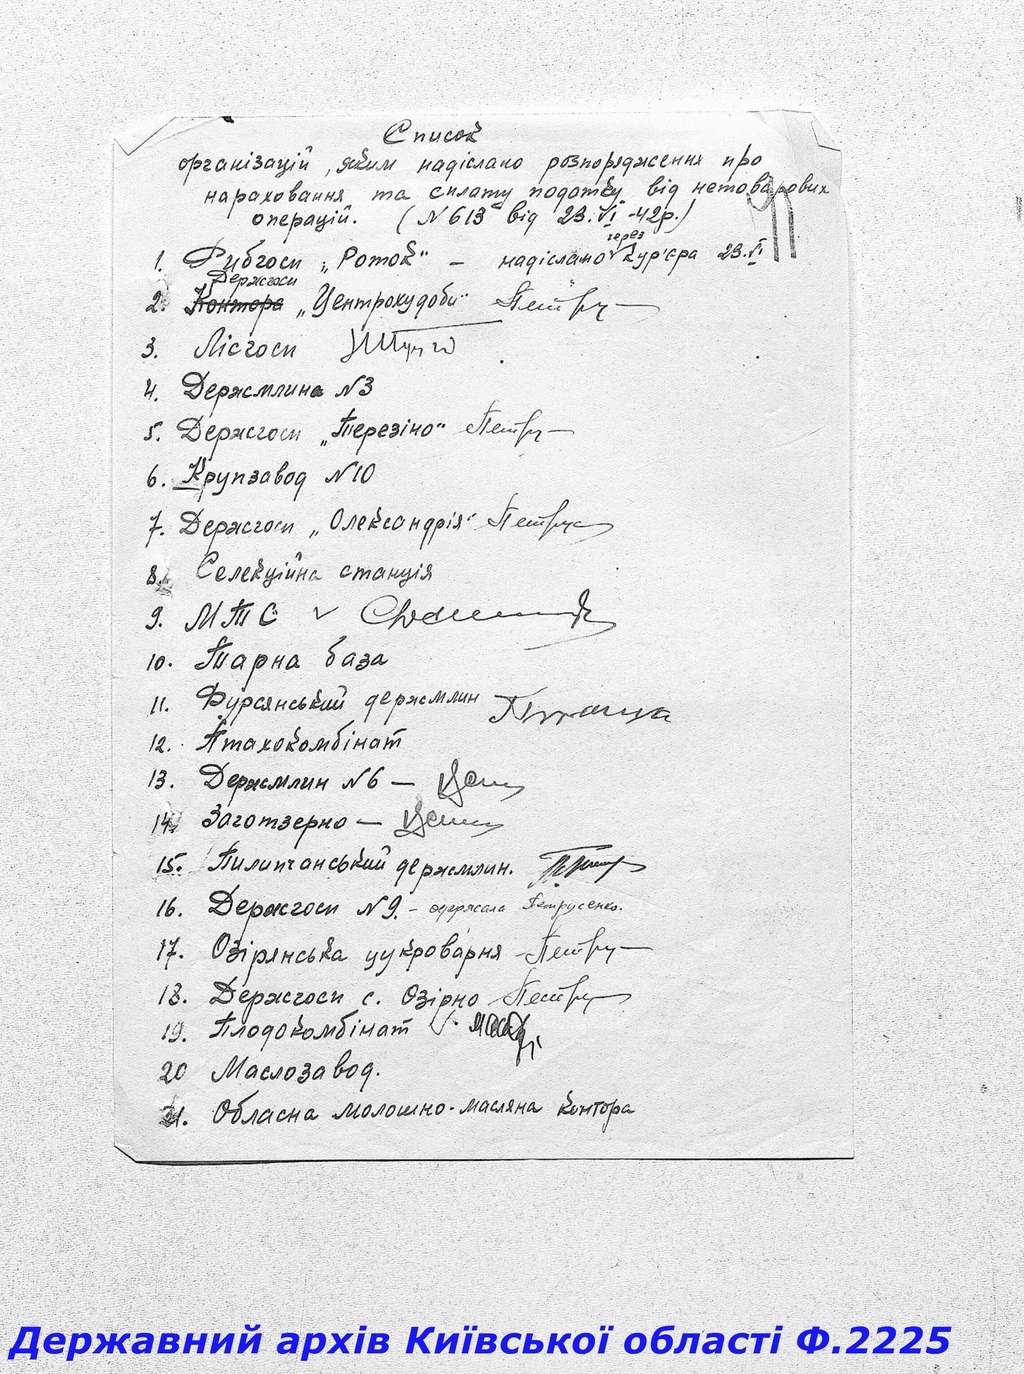 Список
організацій, яким надіслано розпорядження про
нараховання та сплату податку від нетоварових
операцій. (№613 від 23.VI-42р.)
через
1. Рибгосп „Роток" – надіслано кур'єра 23.VI
Держгосп
2. Контора „Центрохудоби" Петру
3. Лісгосп
4. Держмлин №3
5. Держгосп „Терезіно" Петру
6. Крупзавод №10
7. Держгосп „Олександрія" Петрус
8. Селекційна станція
9. МТС
10. Тарна база
11. Фурсянський держмлин
12. Птахокомбінат
13. Держмлин №6 –
14. Заготзерно –
15. Пилипчанський держмлин.
16. Держгосп №9. – одержала Петрусенко.
17. Озірянська цукроварня Петру
18. Держгосп с. Озірно Петру
19. Плодокомбінат
20 Маслозавод.
21. Обласна молошно-масляна контора
Державний архів Київської області Ф.2225